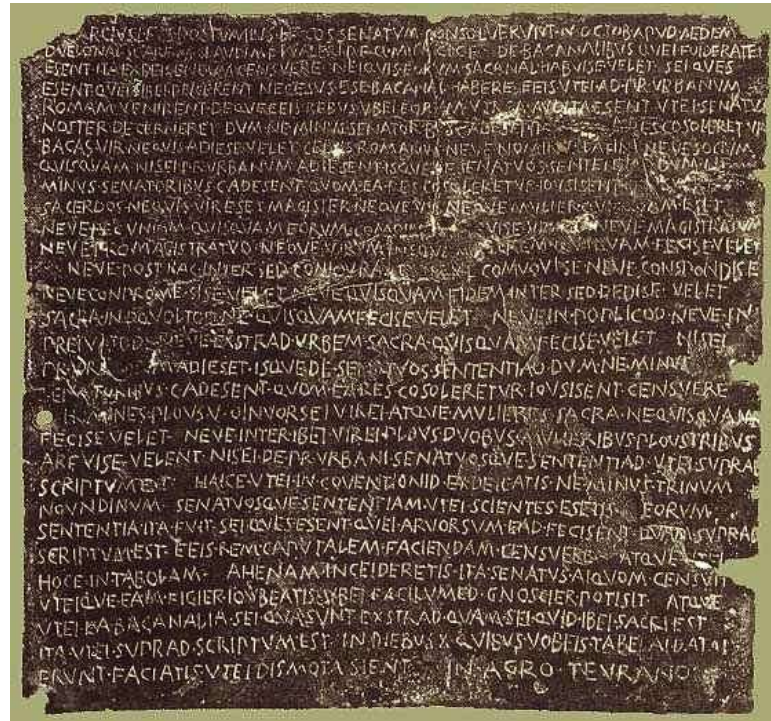 COS SENATVM CONSOLVERVNT N OCTOB APVD AEDEM
DVELONAI DE BACANALIBVS QVEI FOIDERATEI
ESENT ITA CENSVERE NEIQVIS EORVM SACANAL HABVISE VELET SEI QVES
ESENT QVEI SIBEI DEICERENT NECESVS ESE BACANAL HABERE EEIS VTEI AD PR VRBANVM
ROMAM VENIRENT DEQVE EEIS REBVS VBEI EORVM ESENT VTEI SENATVS
NOSTER DECERNERET DVM NE MINVS SENATORBVS COSOLERETVR
BACAS VIR NEQVIS ADIESE VELET ROMANVS NEVE NOMINVS LATINI NEVE SOCIVM
QVISQVAM NISEI PR VRBANVM ADIESENT ISQVE SENATVOS SENTENTIAD DVM NE
MINVS SENATORIBVS C ADESENT QVOM EA RES COSOLERETVR IOVSISENT
SACERDOS NEQVIS VIR ESET MAGISTER NEQVE VIR NEQVE MVLIER QVISQVAM ESET
NEVE PECVNIAM QVISQVAM EORVM NEVE MAGISTRATVM
NEVE PRO MAGISTRATVO NEQVE VIRVM QVIQVAM FECISE VELET
NEVE POST HAC INTER SED CONIOVRASE NEVE COMVOVISE NEVE CONSPONDISE
NEVE CONPROMESISE VELET NEVE QVISQVAM FIDEM INTER SED DEDISE VELET
SACRA IN OQVOLTOD NE QVISQVAM FECISE VELET NEVE IN POPLICOD NEVE IN
PREIVATOD NEVE EXSTRAD VRBEM SACRA QVISQVAM FECISE VELET NISEI
ADIESET ISQVE DE SENATVOS SENTENTIAD DVM NE MINVS
SENATORIBVS C ADESENT QVOM EA RES COSOLERETVR IOVSISENT CENSVERE
HOMINES PLOVS V OINVORSEI VIREI ATQVE MVLIERES SACRA NE QVISQVAM
FECISE VELET NEVE INTER IBEI VIREI PLOVS DVOBVS MVLIERIBVS PLOVS TRIBVS
ARFVISE VELENT NISEI DE PR VRBANI SENATVOSQVE SENTENTIAD VTEI SVPRAD
SCRIPTVM EST HAICE VTEI IN COVENTIONID EXDEICATIS NE MINVS TRINVM
NOVNDINVM SENATVOSQVE SENTENTIAM VTEI SCIENTES ESETIS EORVM
SENTENTIA ITA FVIT SEI QVES ESENT QVEI ARVORSVM EAD FECISENT QVAM SVPRAD
SCRIPTVM EST EEIS REM CAPVTALEM FACIENDAM CENSVERE ATQVE VTEI
HOCE IN TABOLAM AHENAM INCEIDERETIS ITA SENATVS AIQVOM CENSVIT
VTEIQVE EAM FIGIER IOVBEATIS VBEI FACILVMED GNOSCIER POTISIT ATQVE
VTEI EA BACANALIA SEI QVA SVNT EXSTRAD QVAM SEI QVID IBEI SACRI EST
ITA VTEI SVPRAD SCRIPTVM EST IN DIEBVS X QVIBVS VOBEIS TABELAI DATAI
ERVNT FACIATIS VTEI DISMOTA SIENT IN AGRO TEVRANO